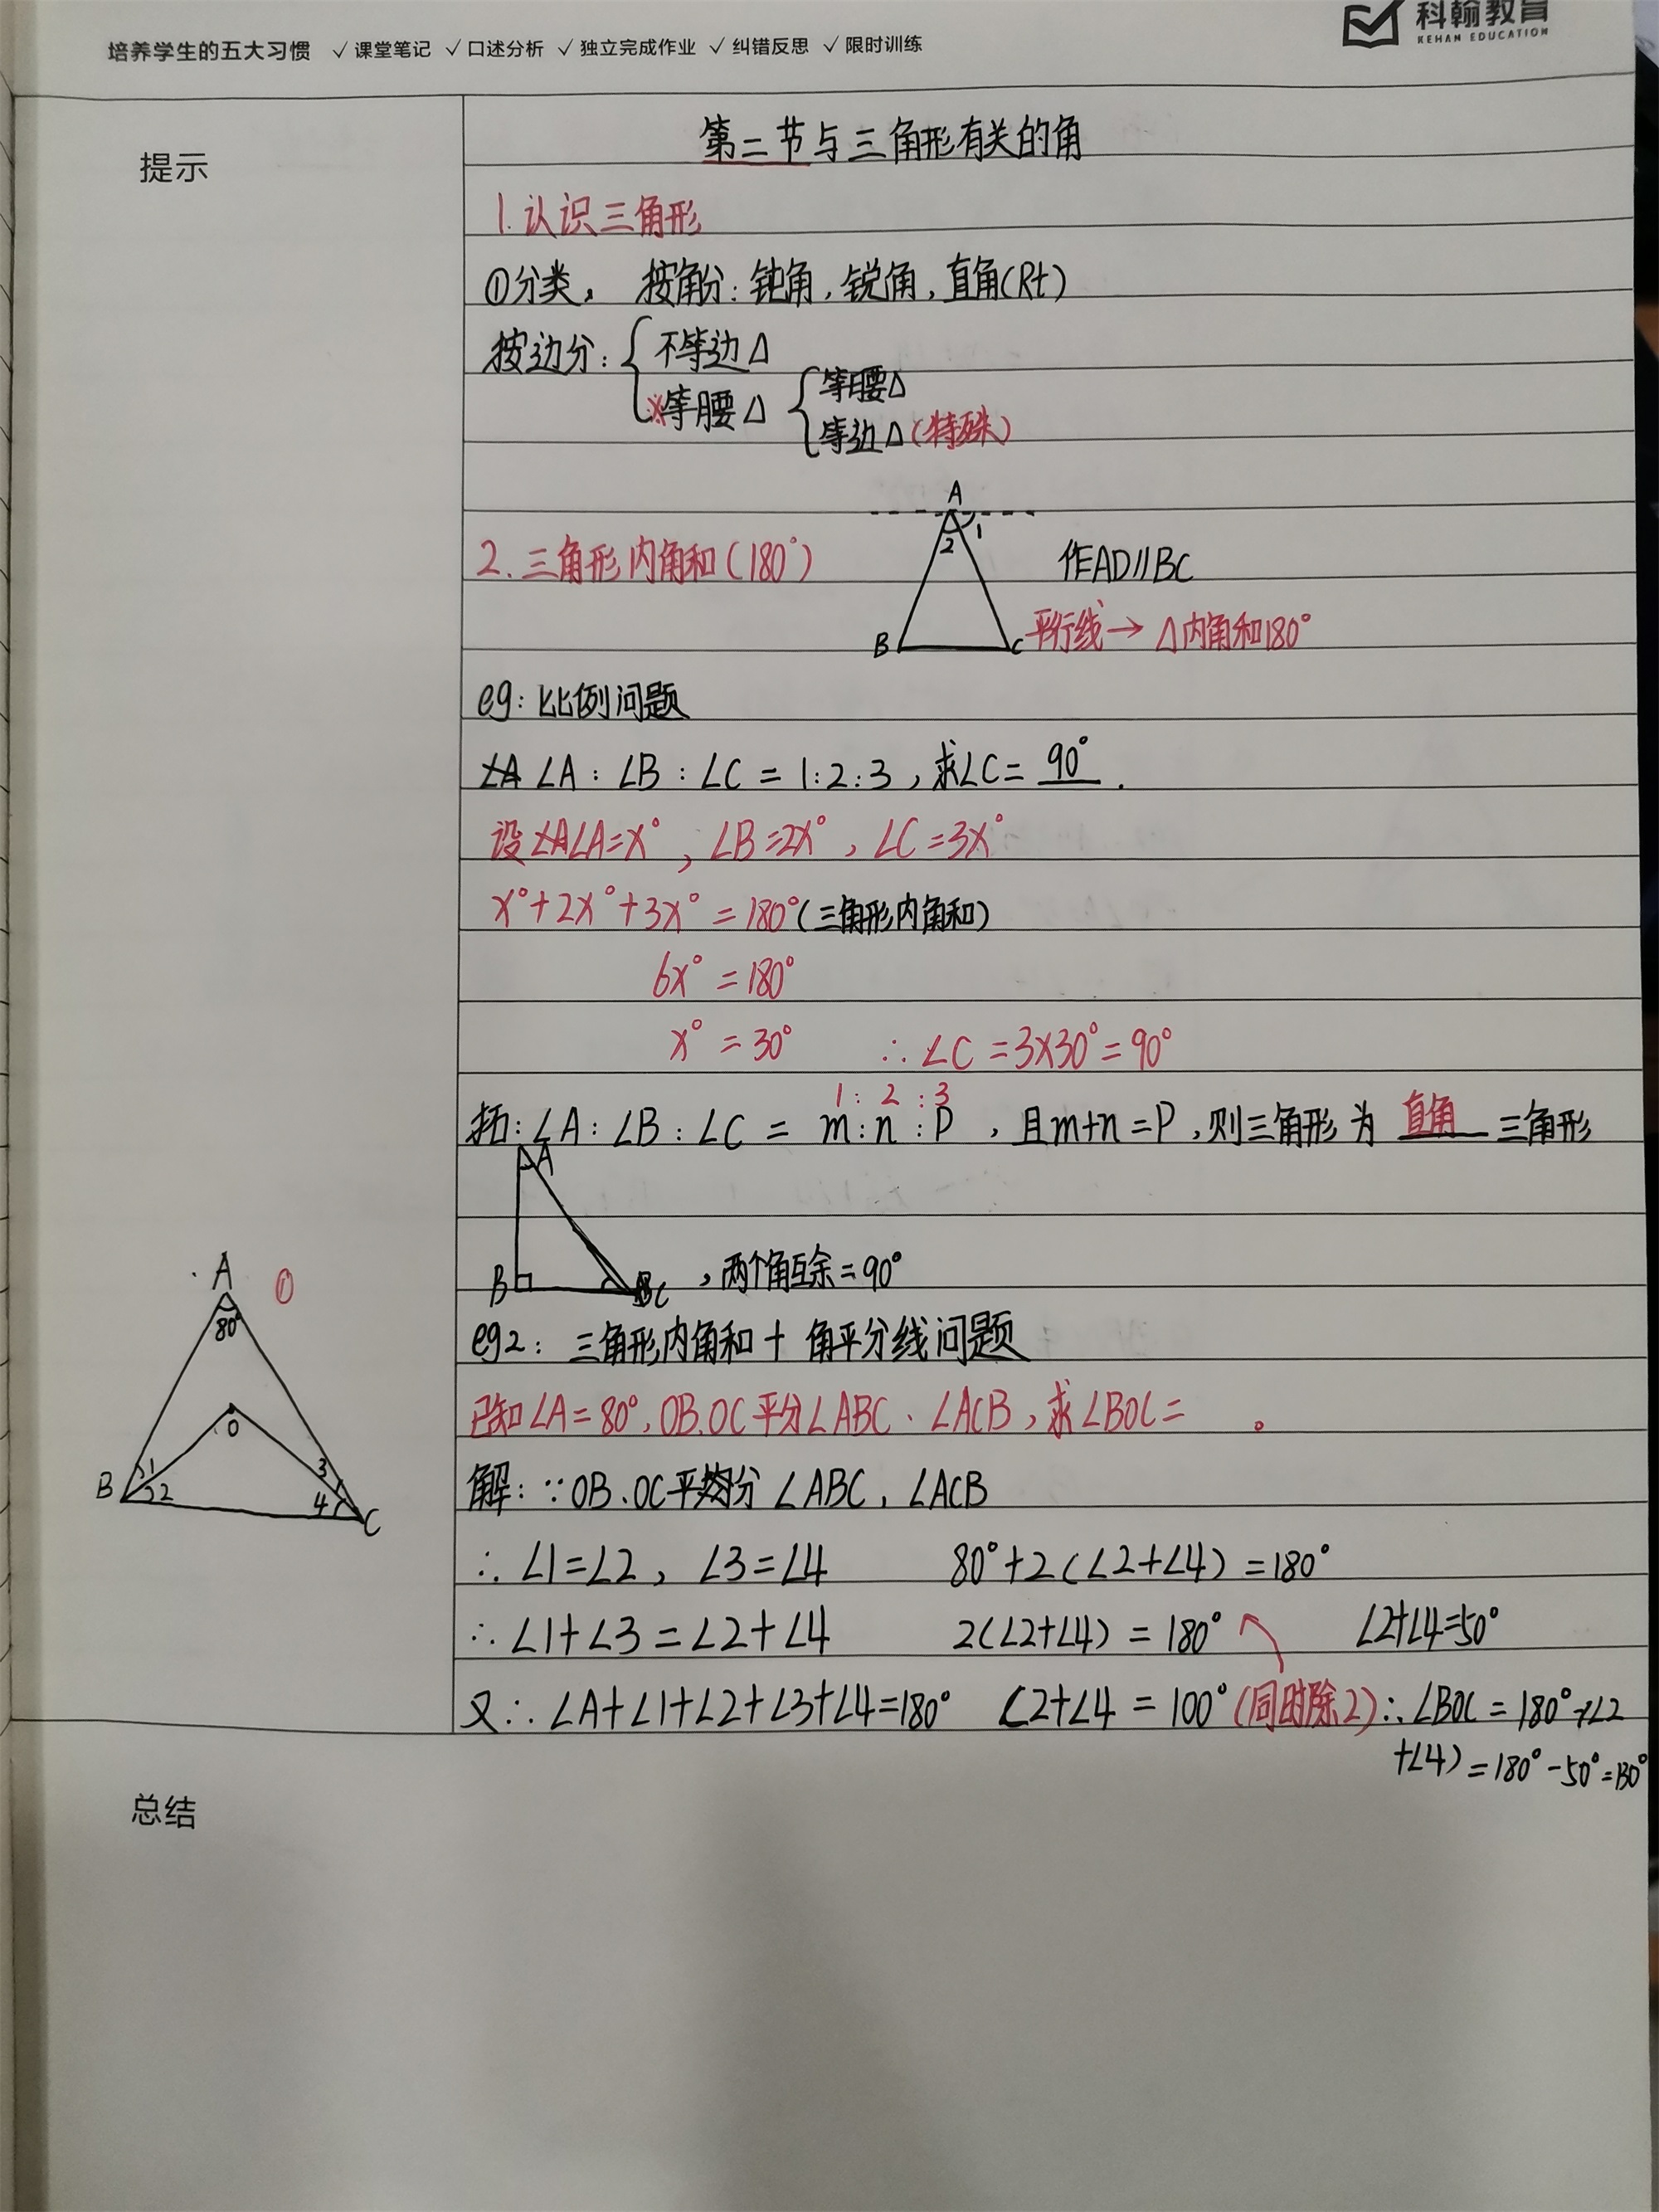 培养学生的五大习惯 ✓课堂笔记 ✓口述分析 ✓独立完成作业 ✓纠错反思 ✓限时训练
科翰教育
KEHAN EDUCATION
提示
第二节与三角形有关的角
1.认识三角形
①分类, 按角分:钝角,锐角,直角(Rt)
按边分: 不等边△
※等腰△ 等腰△
等边△(特殊)
A
1
2
B
C
2.三角形内角和(180°)
作AD//BC
平行线→△内角和180°
eg:比例问题
∠A:∠B:∠C=1:2:3,求∠C=90°.
设∠A=x°,∠B=2x°,∠C=3x°
x°+2x°+3x°=180°(三角形内角和)
6x°=180°
x°=30° ∴∠C=3×30°=90°
1:2:3
拓:∠A:∠B:∠C=m:n:P,且m+n=P,则三角形为直角三角形
A
B
C
,两个角互余=90°
eg2:三角形内角和+角平分线问题
已知∠A=80°,OB.OC平分∠ABC、∠ACB,求∠BOC= 。
A
①
80°
O
B
1
2
3
4
C
解:∵OB.OC平分∠ABC,∠ACB
∴∠1=∠2,∠3=∠4 80°+2(∠2+∠4)=180°
∴∠1+∠3=∠2+∠4 2(∠2+∠4)=180° ∠2+∠4=50°
又∵∠A+∠1+∠2+∠3+∠4=180° ∠2+∠4=100°(同时除2)∴∠BOC=180°-(∠2
+∠4)=180°-50°=130°
总结